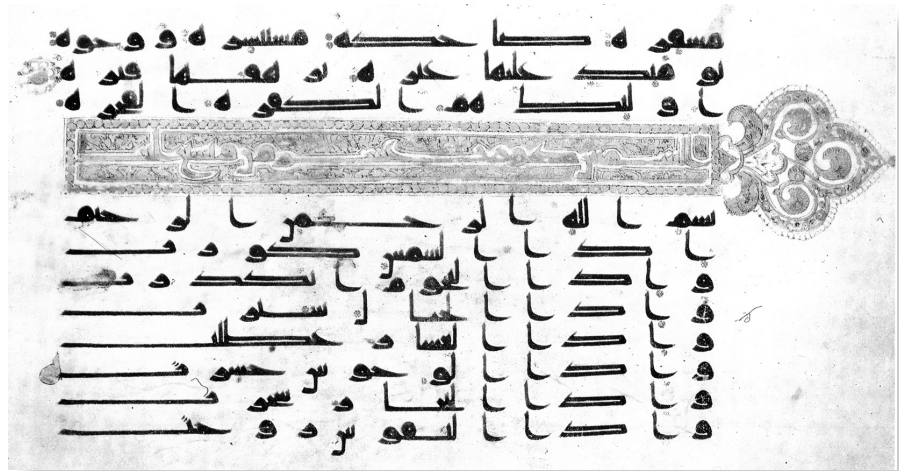 مسفرة ضاحكة مستبشرة و وجوه
يومئذ عليها غبرة ترهقها قترة
اولئك هم الكفرة الفجرة
بسم الله الرحمن الرحيم
اذا الشمس كورت
واذا النجوم انكدرت
واذا الجبال سيرت
واذا العشار عطلت
واذا الوحوش حشرت
واذا البحار سجرت
واذا النفوس زوجت